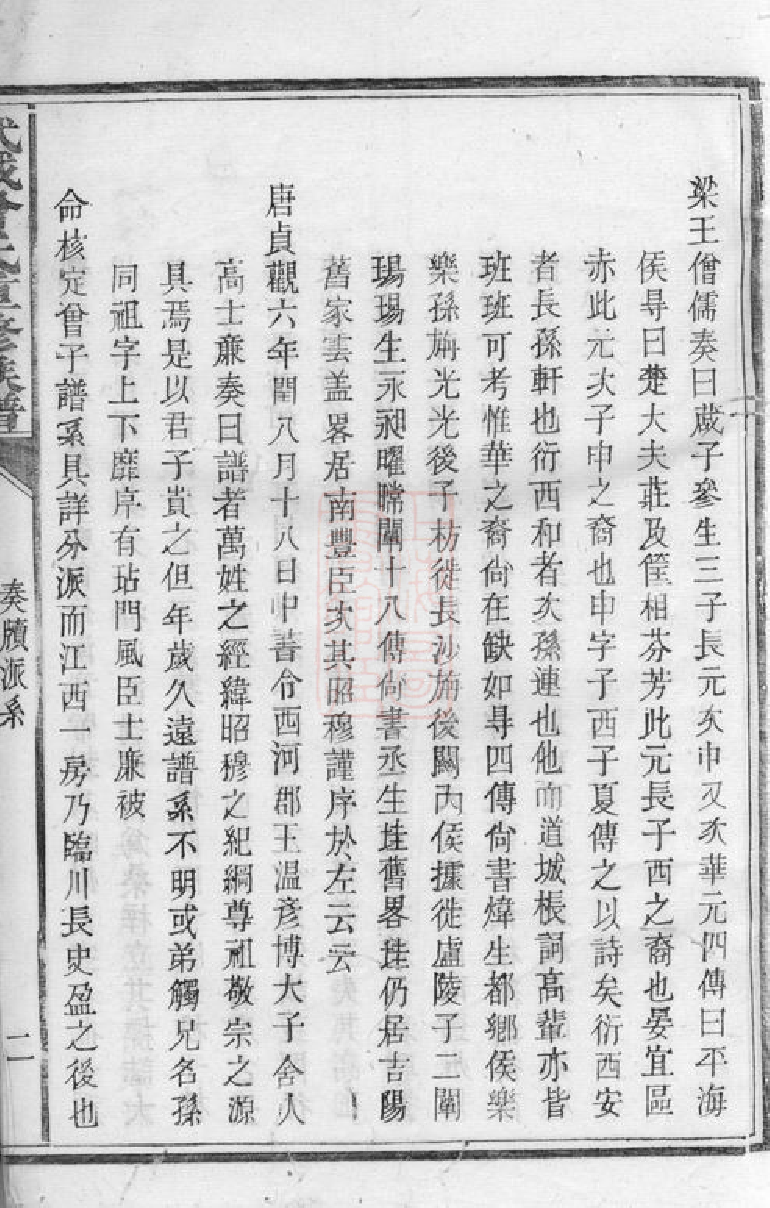 梁王僧儒奏曰蒇子參生三子長元次申又次華元四傳曰平海
侯尋曰楚大夫莊及筐相芬芳此元長子西之裔也晏宜區
赤此元次子申之裔也申字子西子夏傳之以詩矣衍西安
者長孫軒也衍西和者次孫連也他而道城棖詞高輩亦皆
班班可考惟華之裔尙在缺如尋四傳尙書煒生都鄉侯樂
樂孫旃光光後子枋徙長沙旃後闢內侯據徙盧陵子二闡
瑒瑒生永昶曜㫾闡十八傳尙書丞生珪舊畧珪仍居吉陽
舊家雲盖畧居南豐臣次其昭穆謹序於左云云
唐貞觀六年閏八月十八日中書令西河郡王溫彥博大子舍人
高士亷奏曰譜者萬姓之經緯昭穆之紀綱尊祖敬宗之源
具焉是以君子貴之但年歲久遠譜系不明或弟觸兄名孫
同祖字上下靡序有玷門風臣士亷被
命核定曾子譜系具詳分派而江西一房乃臨川長史盈之後也
武城曾氏重修族譜
奏牘派系
二